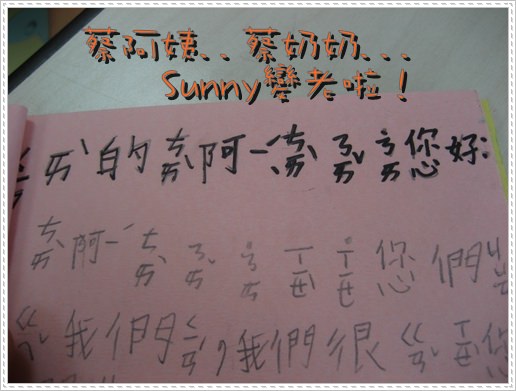 蔡阿姨、、蔡奶奶、、、
Sunny變老啦！
ㄞˋ的ㄘㄞˋ阿ㄧˊ、ㄘㄞˋㄋㄞˇㄋㄞ˙您好：
ㄘㄞˋ阿ㄧˊㄘㄞˋㄋㄞˇㄋㄞ˙ㄒㄧㄝˋㄒㄧㄝ˙您們
我們，我們很ㄍㄢˇㄒㄧㄝˋ您